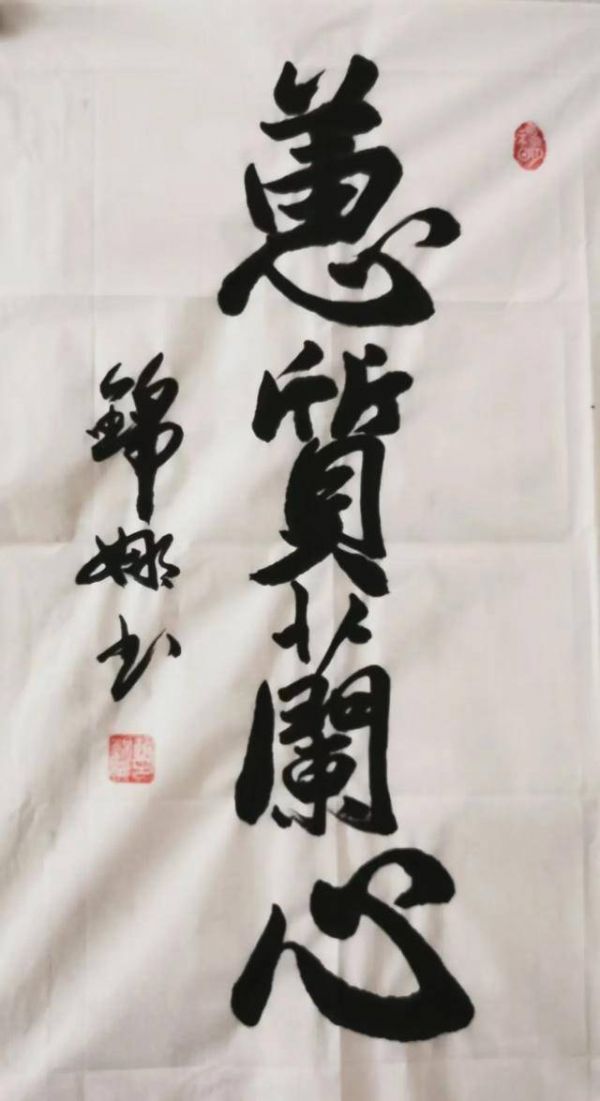 蕙質蘭心
錦娜书